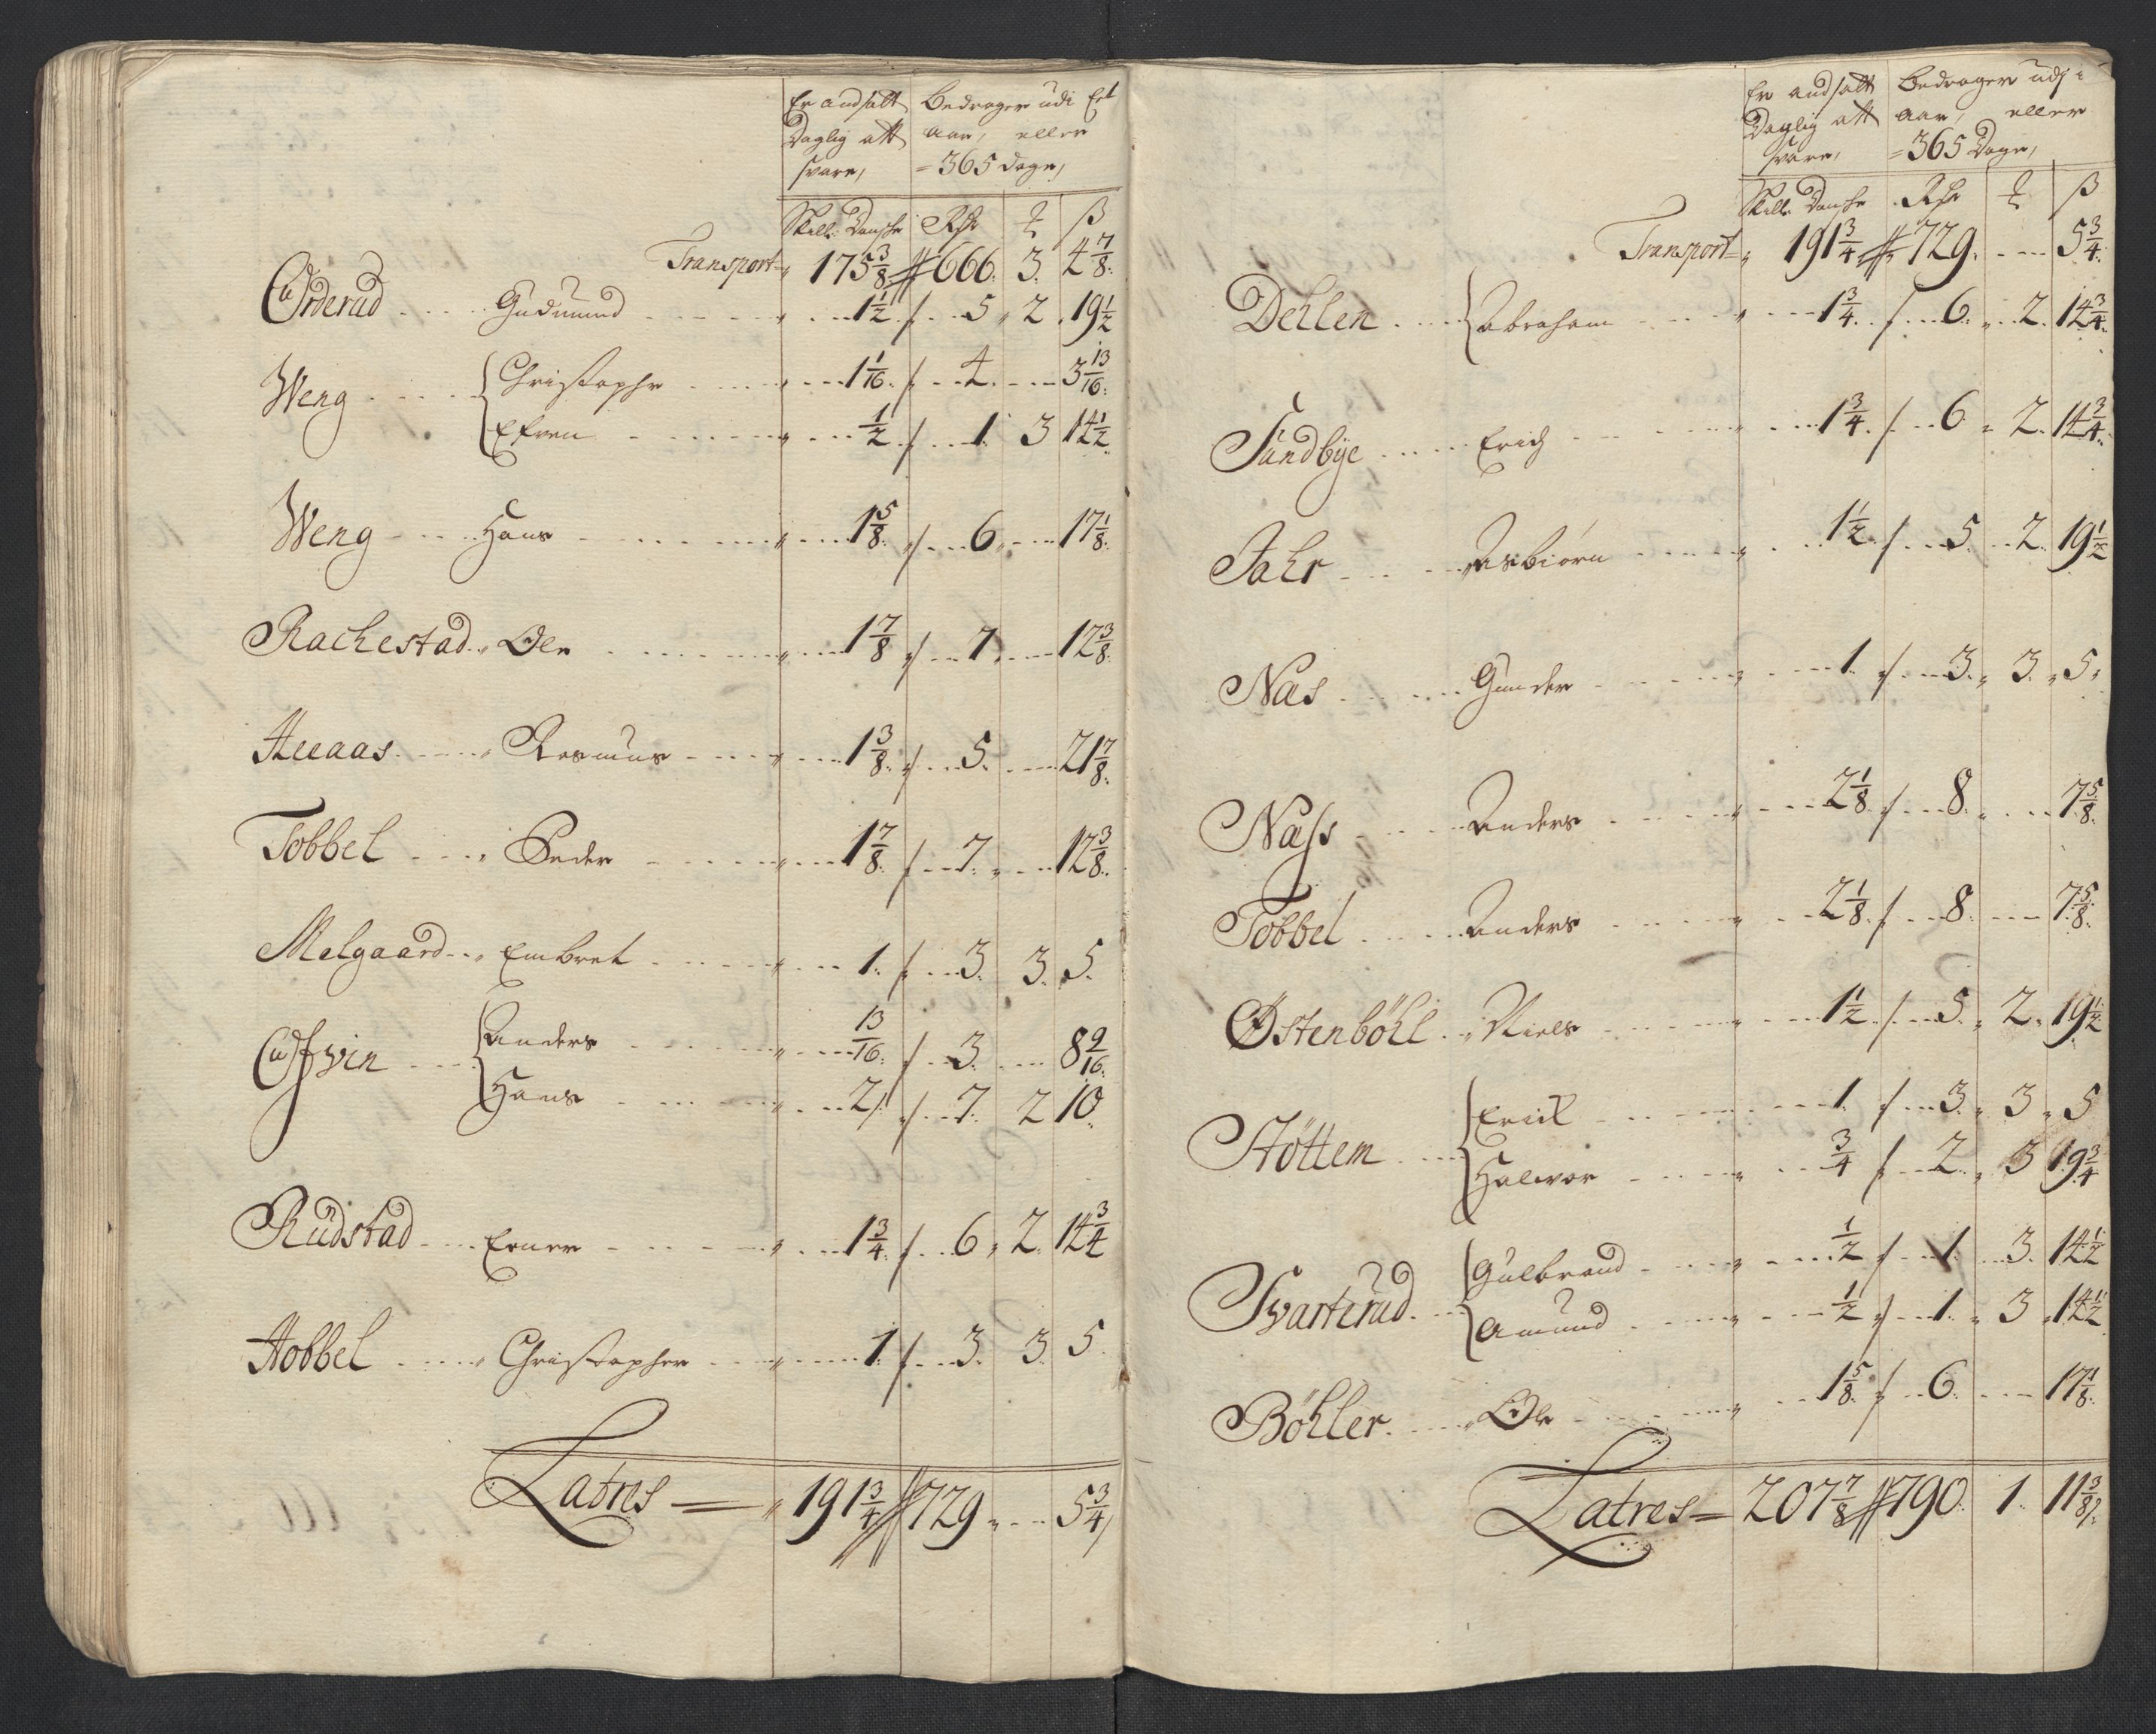 Er andsatt Daglig att svare, | Bedrager udi Eet aar, eller = 365 dage,
Skill: Danske | Rdr | ƶ | ß
Transport 175 3/8 // 666. 3. 4 7/8.
Orderud Gudmund 1 1/2 5 2 19 1/2
Weng Christopher 1 1/16 4 3 13/16
Efven 1/2 1 3 14 1/2
Weng Hans 1 5/8 6 17 1/8
Rachestad Ole 1 7/8 7 12 3/8
Aueaas Rasmus 1 3/8 5 21 7/8
Tobbel Peder 1 7/8 7 12 3/8
Melgaard Embret 1 3 3 5
Anders 13/16 3 8 9/16
Hans 2 7 2 10
Rudstad Erner 1 3/4 6 2 14 3/4
Hobbel Christopher 1 3 3 5
Latres 191 3/4 // 729 5 3/4
Er andsatt Daglig att svare, | Bedrager udj aar, eller = 365 Dage,
Skill: Danske | Rdr | ƶ | ß
Transport 191 3/4 // 729. 5 3/4
Dehlen Abraham 1 3/4 6 2 14 3/4
Sundbÿe Erich 1 3/4 6 2 14 3/4
Jahr Asbiørn 1 1/2 5 2 19 1/2
Nas Gunder 1 3 3 5
Nass Anders 2 1/8 8 7 5/8
Tobbel Anders 2 1/8 8 7 5/8
Østenböhl Niels 1 1/2 5 2 19 1/2
Stöttem Erick 1 3 3 5
Halvor 3/4 2 3 19 3/4
Svarterud Gulbrand 1/2 1 3 14 1/2
Amund 1/2 1 3 14 1/2
Böhler Ole 1 5/8 6 17 1/8
Latres 207 7/8 // 790 1 11 3/8